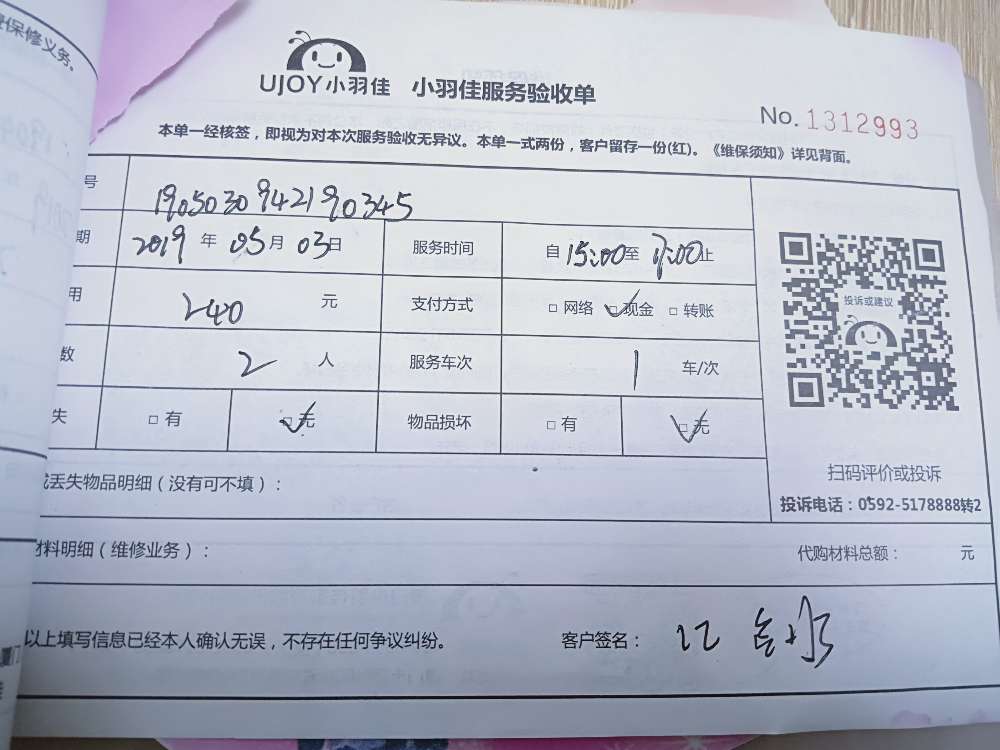 保修义务。
UJOY小羽佳 小羽佳服务验收单
No. 1312993
本单一经核签，即视为对本次服务验收无异议。本单一式两份，客户留存一份(红)。《维保须知》详见背面。
号 1905030942190345
期 2019 年 05 月 03 日 服务时间 自 15:00 至 17:00 止
用 240 元 支付方式 □ 网络 ☑ 现金 □ 转账
投诉或建议
数 2 人 服务车次 1 车/次
失 □ 有 ☑ 无 物品损坏 □ 有 ☑ 无
扫码评价或投诉
丢失物品明细（没有可不填）：
投诉电话：0592-5178888转2
材料明细（维修业务）： 代购材料总额： 元
以上填写信息已经本人确认无误，不存在任何争议纠纷。 客户签名：